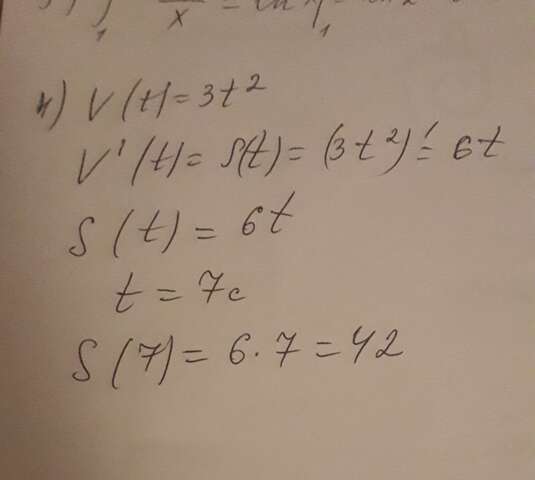 4) V(t)=3t²
V'(t)=S(t)=(3t²)'=6t
S(t)=6t
t=7c
S(7)=6·7=42